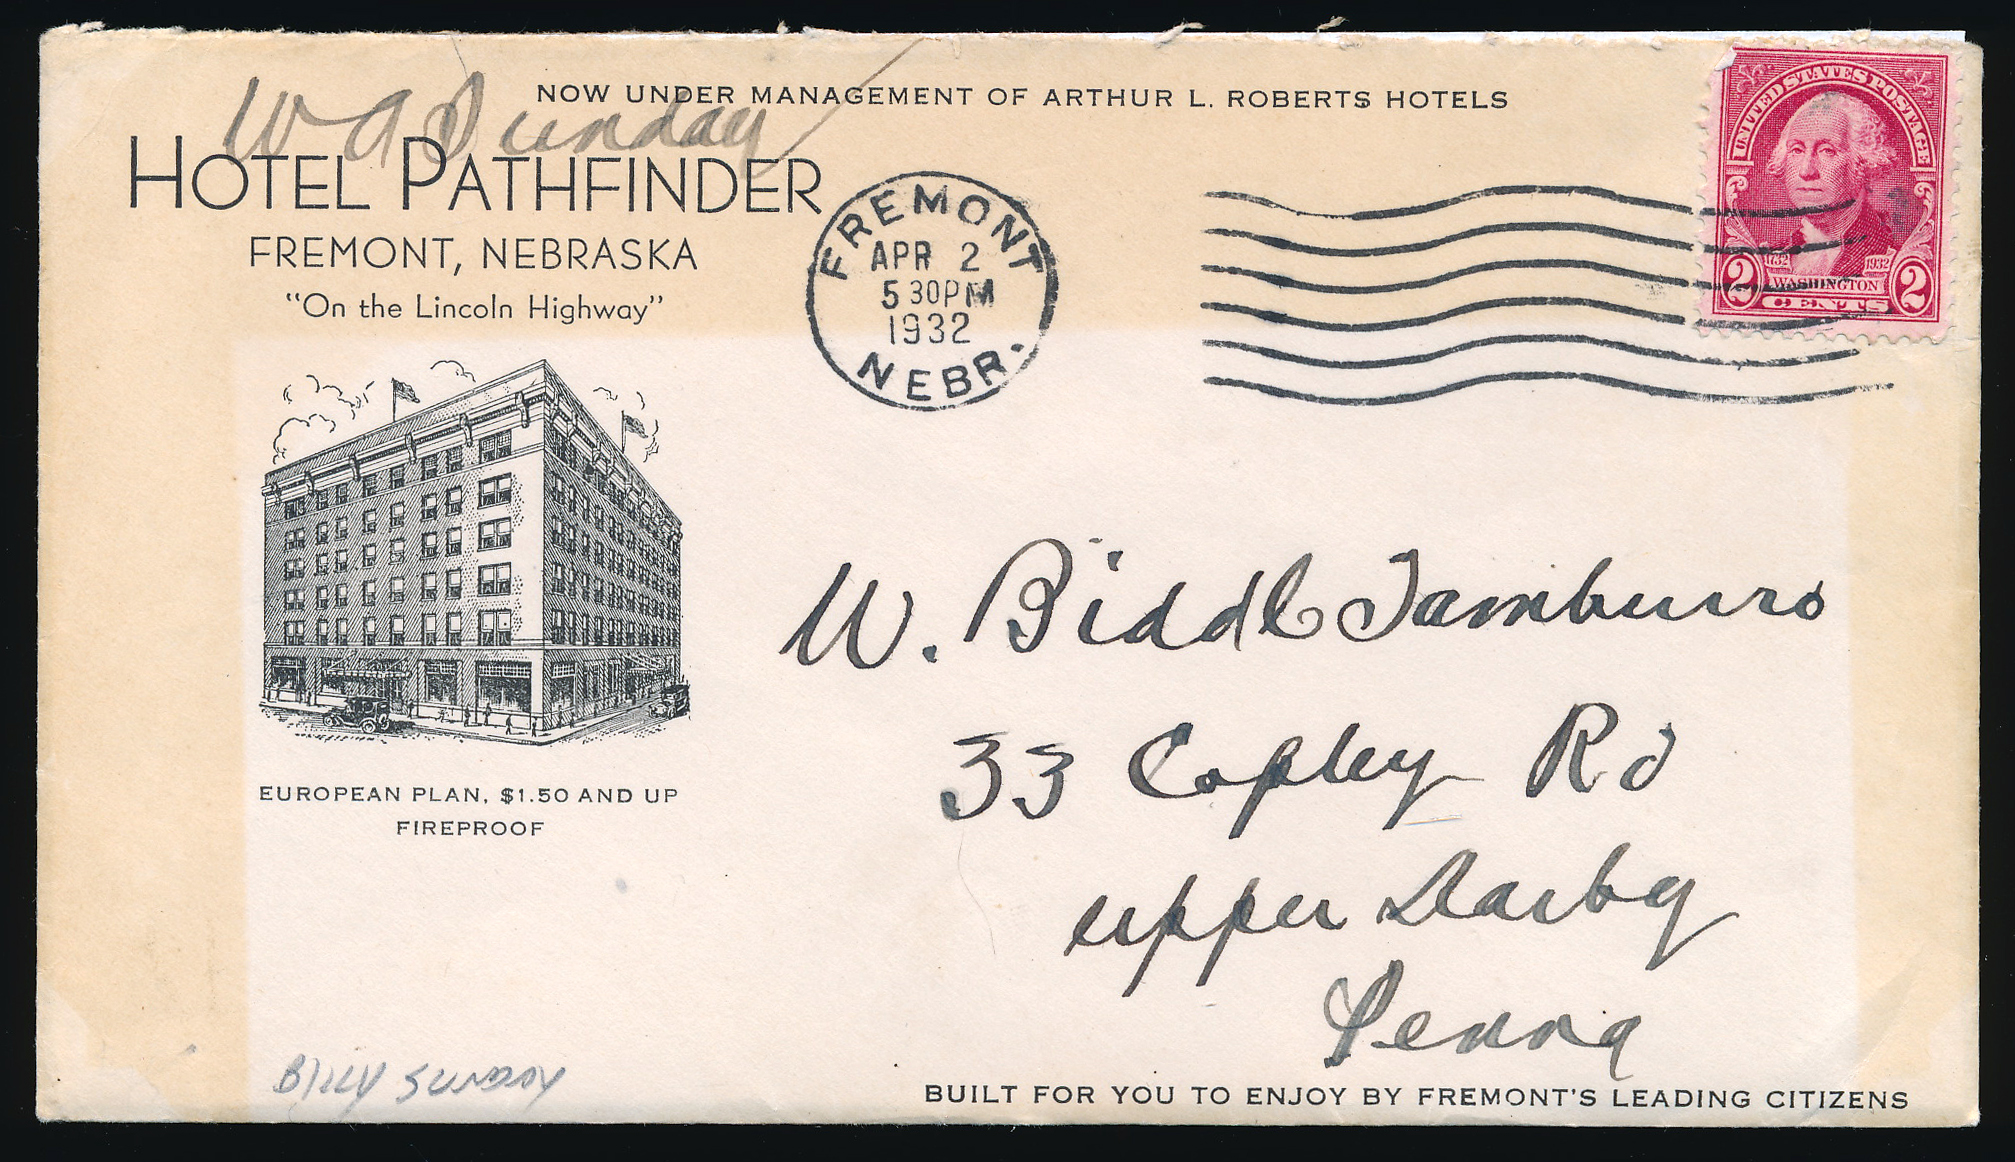 NOW UNDER MANAGEMENT OF ARTHUR L. ROBERTS HOTELS
W A Sunday
HOTEL PATHFINDER
FREMONT, NEBRASKA
"On the Lincoln Highway"
FREMONT
APR 2
5 30PM
1932
NEBR.
UNITED STATES POSTAGE
1732 1932
2 WASHINGTON 2
CENTS
W. Biddle Tamburro
33 Copley Rd
upper Darby
Penna
EUROPEAN PLAN, $1.50 AND UP
FIREPROOF
Billy Sunday
BUILT FOR YOU TO ENJOY BY FREMONT'S LEADING CITIZENS